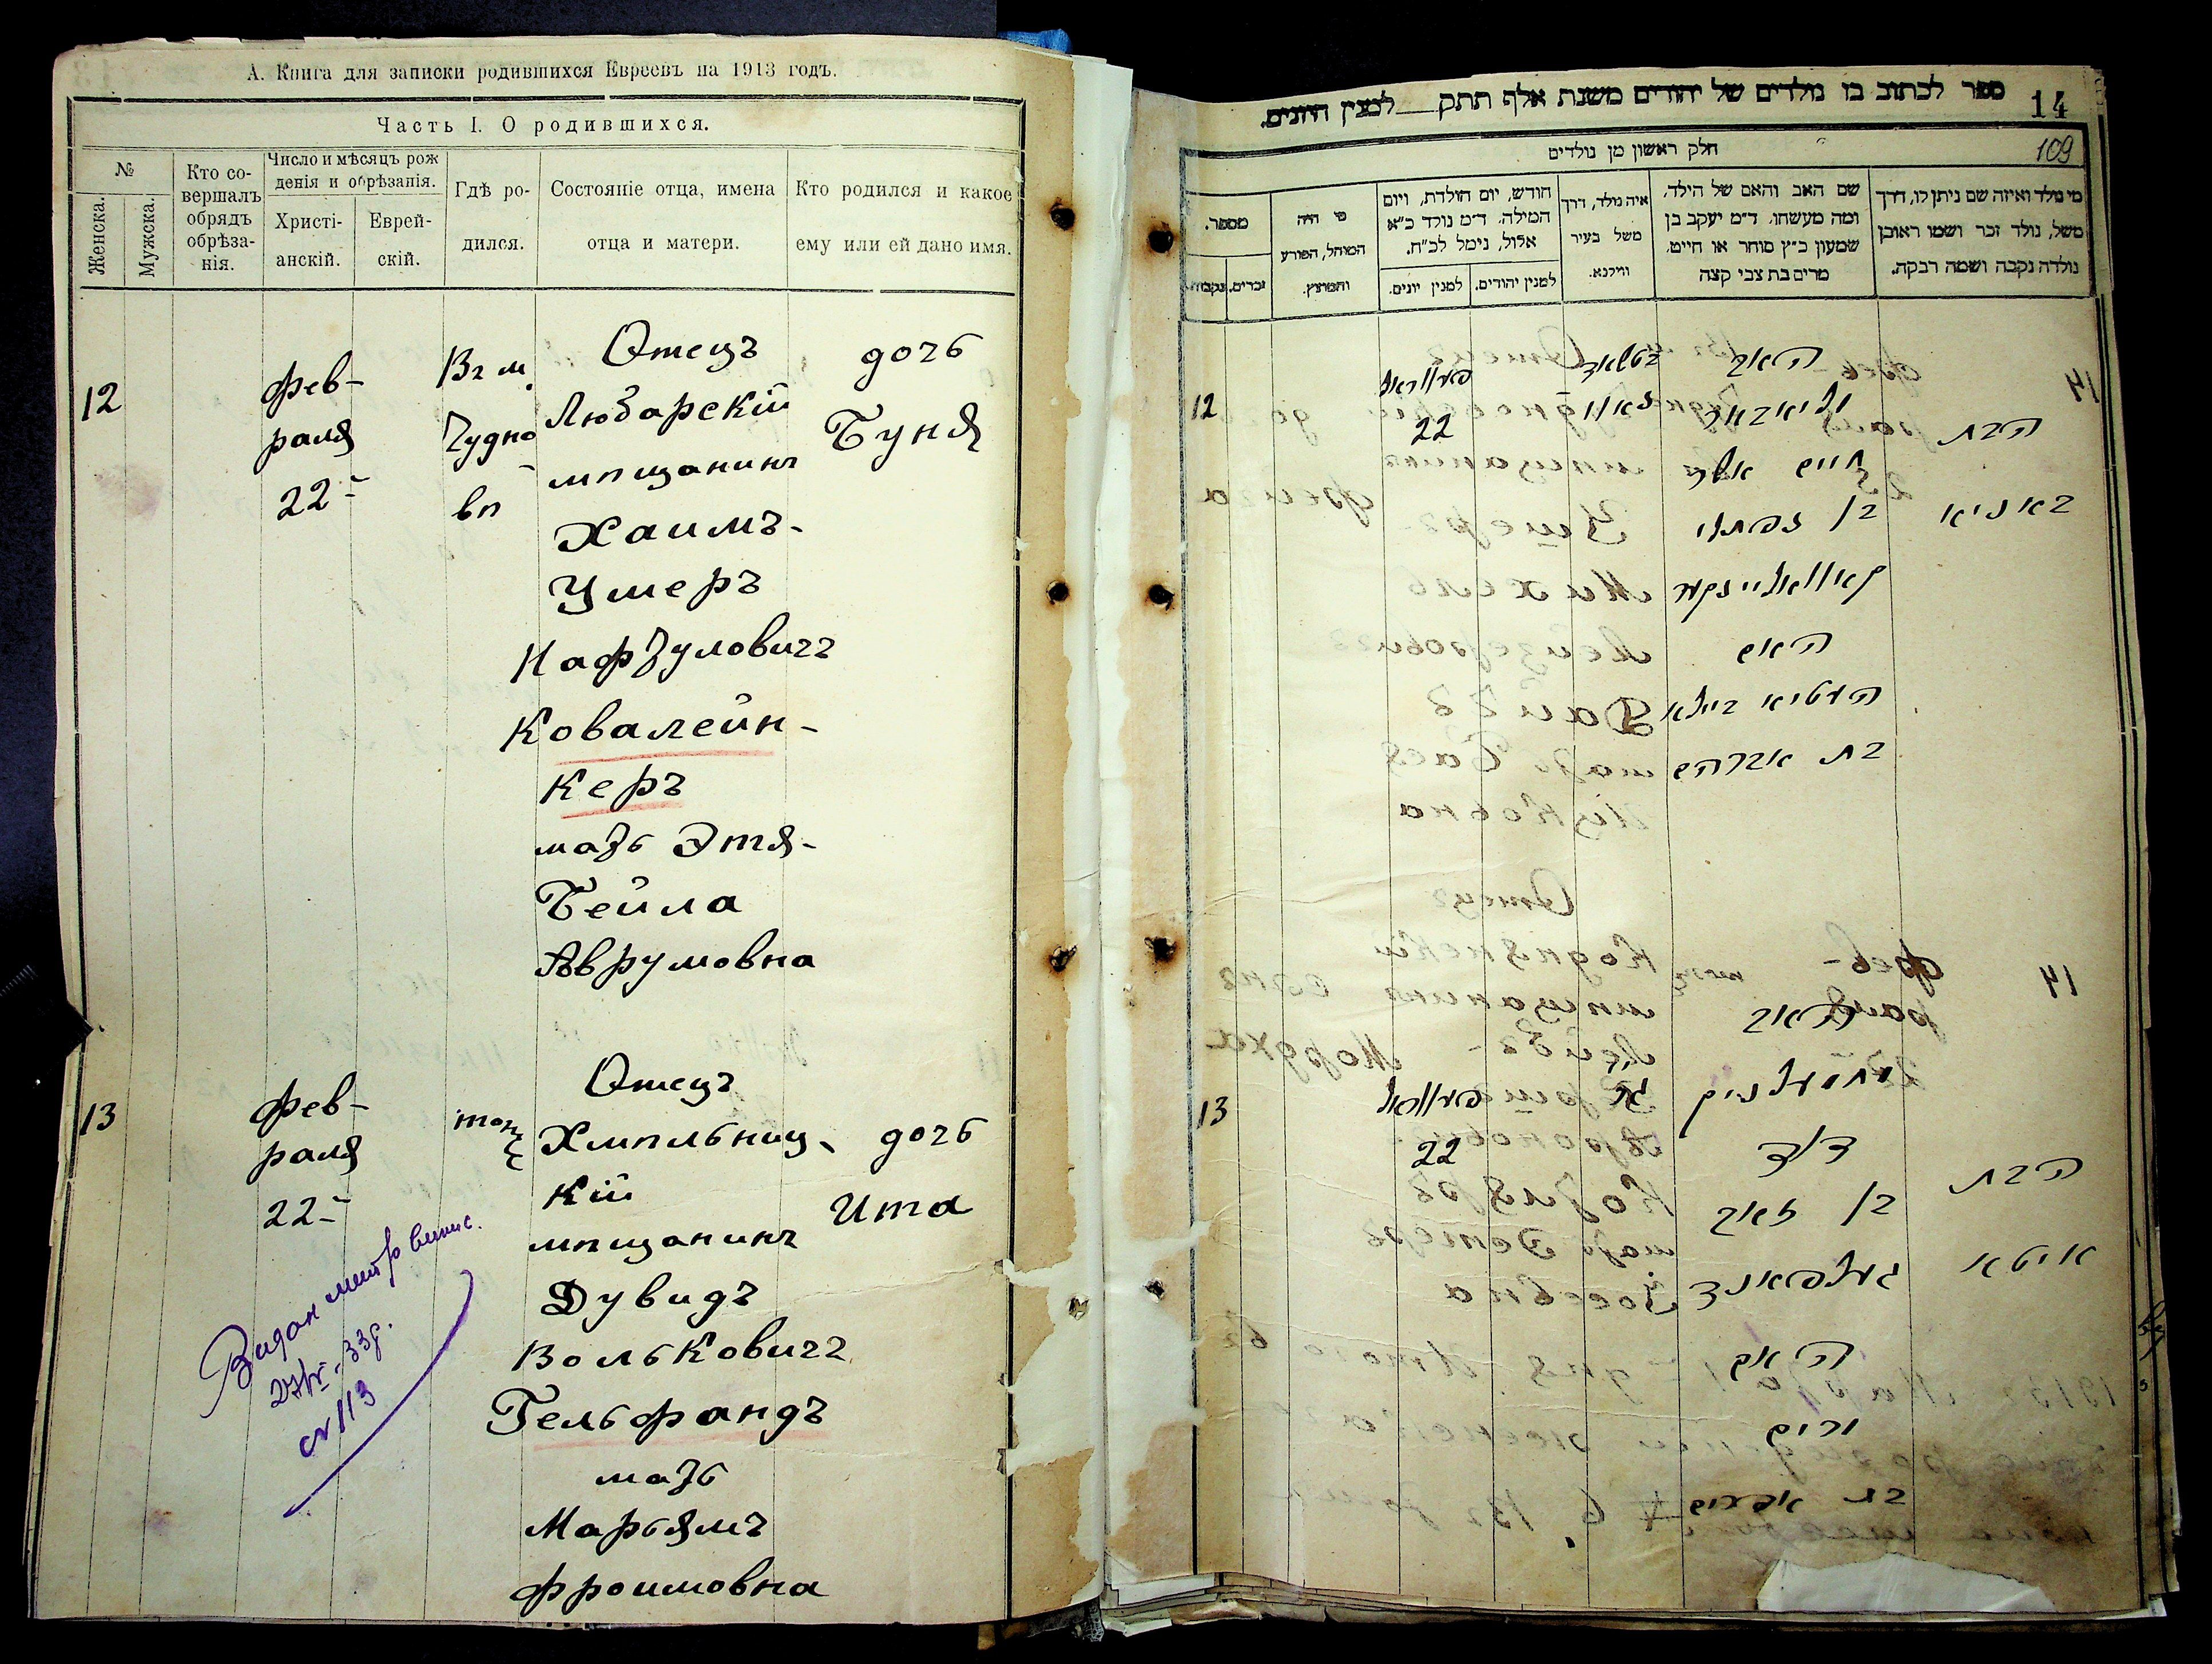 А. Книга для записки родившихся Евреевъ на 1913 годъ.
Часть I. О родившихся.
№
Женска.
Мужска.
Кто со-
вершалъ
обрядъ
обрѣза-
нія.
Число и мѣсяцъ рож
денія и обрѣзанія.
Христі-
анскій.
Еврей-
скій.
Гдѣ ро-
дился.
Состояніе отца, имена
отца и матери.
Кто родился и какое
ему или ей дано имя.
12
фев-
раля
22-
Вг м.
Чудно
вѣ
Отецъ
Любарскій
мѣщанинъ
Хаимъ-
Ушеръ
Нафтуловичъ
Ковалейн-
керъ
мать Этя-
Бейла
Аврумовна
дочь
Буня
13
фев-
раля
22-
тоже
Отецъ
Хмѣльниц-
кій
мѣщанинъ
Дувидъ
Вольковичъ
Гельфандъ
мать
Марьямъ
Фроимовна
дочь
Ита
Видан метр випис.
33р.
№ 113
ספר לכתוב בו נולדים של יהודים משנת אלף תתק למנין היונים.
14
חלק ראשון מן נולדים
109
מי נולד ואיזה שם ניתן לו, דרך
משל, נולד זכר ושמו ראובן
נולדה נקבה ושמה רבקה.
שם האב והאם של הילד,
ומה מעשהו. ד״מ יעקב בן
שמעון כ״ץ סוחר או חייט.
מרים בת צבי קצה
איה נולד, דרך
משל בעיר
ווילנא.
חודש, יום הולדת, ויום
המילה. ד״מ נולד כ״א
אלול, נימל לכ״ח.
למנין יהודים.
למנין יונים.
מי היה
המוהל, הפורע
והמוצץ.
מספר.
זכרים.
נקבות.
הבת
באניא
האב
חיים אשר
בן נפתלי
קאוואליינקער
האם
העטיא ביילא
בת אברהם
פעווראל
22
12
הבת
איטא
האב
דוד
בן זאב
געלפאנד
האם
מרים
בת אפרים
פעווראל
22
13